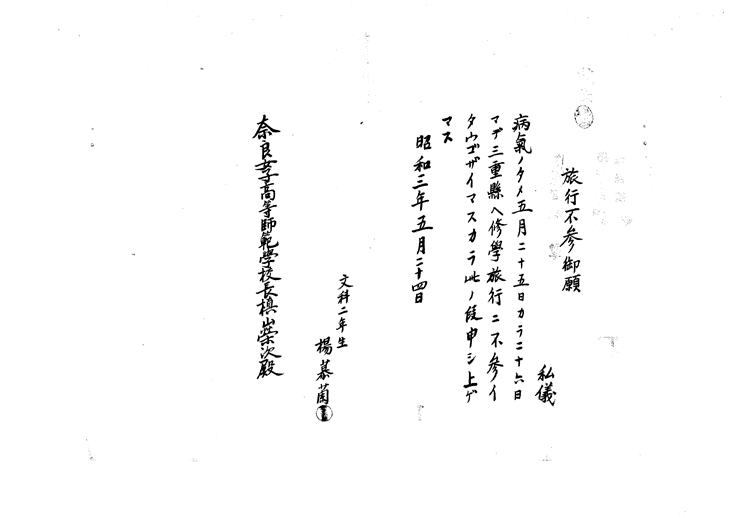 旅行不参御願
私儀
病氣ノタメ五月二十五日カラ二十六日
マデ三重縣ヘ修學旅行ニ不參イ
タウゴザイマスカラ此ノ段申シ上ゲ
マス
昭和三年五月二十四日
文科二年生
楊慕蘭
奈良女子高等師範學校長槙山榮次殿